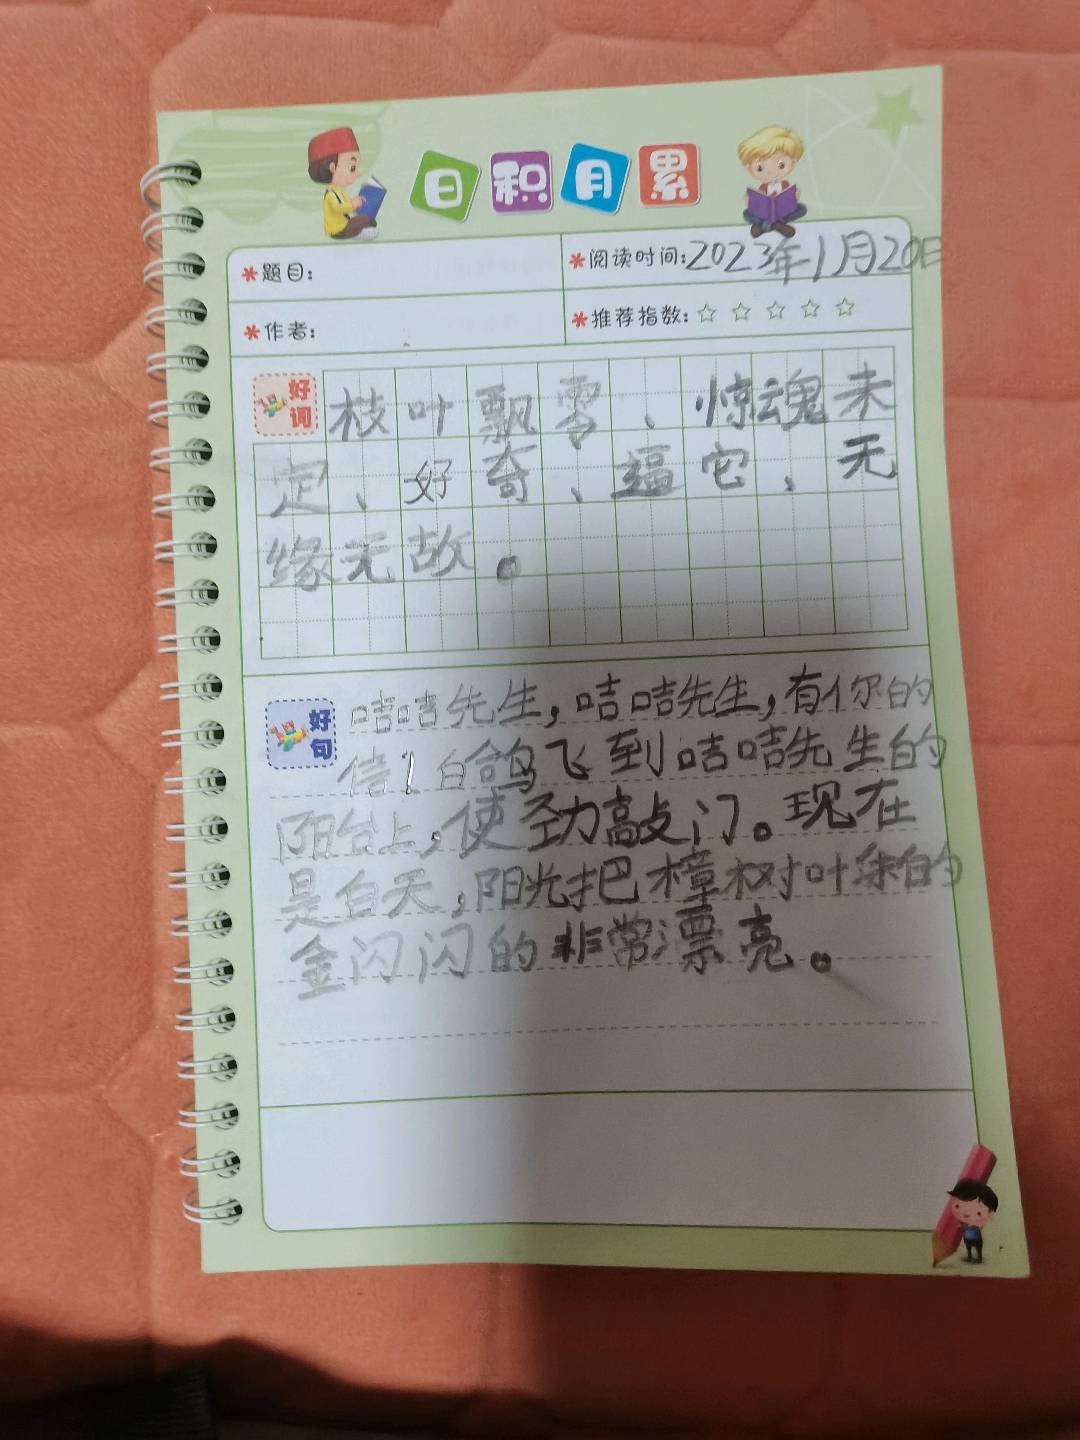 日积月累
*题目:
*阅读时间:2023年1月20日
*作者:
*推荐指数:☆☆☆☆☆
好词
枝叶飘零、惊魂未
定、好奇、逼它、无
缘无故。
好句
咭咭先生,咭咭先生,有你的
信!白鸽飞到咭咭先生的
阳台上,使劲敲门。现在
是白天,阳光把樟树叶染的
金闪闪的非常漂亮。